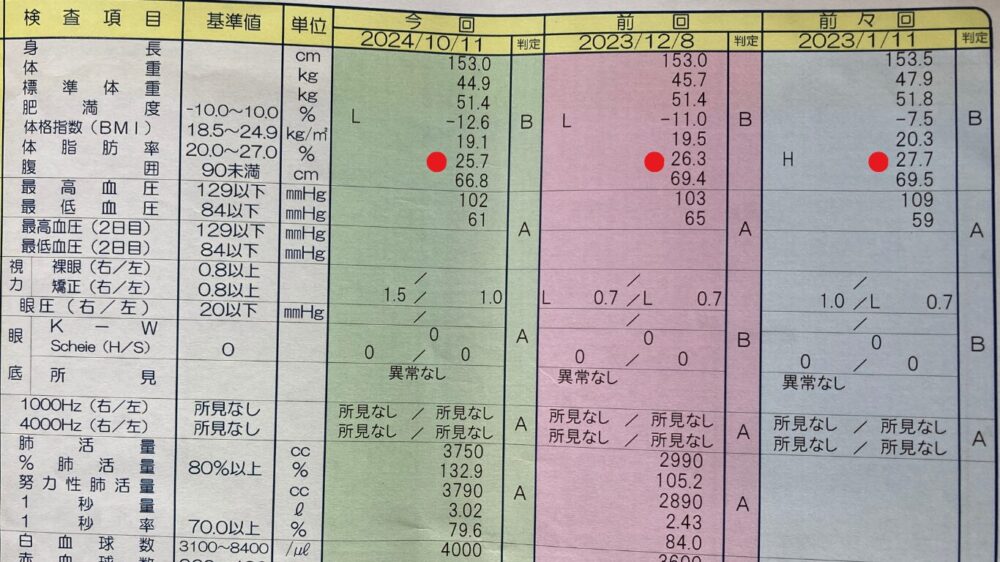 検査項目 基準値 単位 今回 前回 前々回
2024/10/11 判定 2023/12/8 判定 2023/1/11 判定
身長 cm 153.0 153.0 153.5
体重 kg 44.9 45.7 47.9
標準体重 kg 51.4 51.4 51.8
肥満度 -10.0～10.0 % L -12.6 B L -11.0 B -7.5 B
体格指数(BMI) 18.5～24.9 kg/㎡ 19.1 19.5 20.3
体脂肪率 20.0～27.0 % 25.7 26.3 H 27.7
腹囲 90未満 cm 66.8 69.4 69.5
最高血圧 129以下 mmHg 102 103 109
最低血圧 84以下 mmHg 61 A 65 A 59 A
最高血圧(2日目) 129以下 mmHg
最低血圧(2日目) 84以下 mmHg
視力 裸眼(右/左) 0.8以上 / / /
矯正(右/左) 0.8以上 1.5 / 1.0 L 0.7 / L 0.7 1.0 / L 0.7
眼圧(右/左) 20以下 mmHg / / /
眼底 K-W 0 A 0 B 0 B
Scheie(H/S) 0 0 / 0 0 / 0 0 / 0
所見 異常なし 異常なし 異常なし
1000Hz(右/左) 所見なし 所見なし / 所見なし A 所見なし / 所見なし A 所見なし / 所見なし A
4000Hz(右/左) 所見なし 所見なし / 所見なし 所見なし / 所見なし 所見なし / 所見なし
肺活量 cc 3750 2990
%肺活量 80%以上 % 132.9 105.2
努力性肺活量 cc 3790 A 2890 A
1秒量 ℓ 3.02 2.43
1秒率 70.0以上 % 79.6 84.0
白血球数 3100～8400 /μl 4000 3600
赤血球数